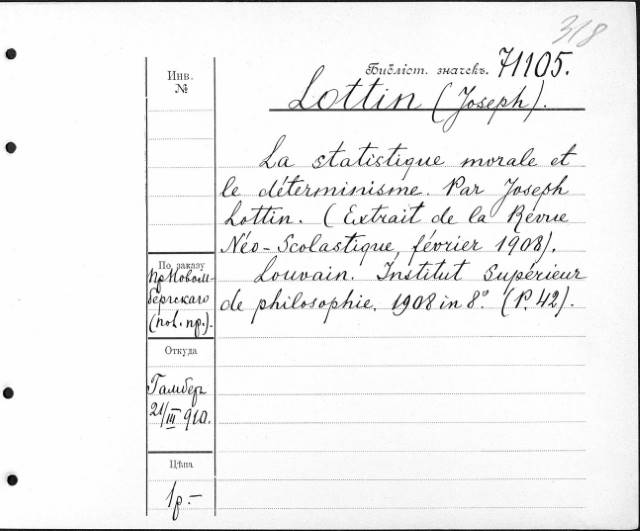 318
Инв.
№
Библіот. значекъ. 71105.
Lottin (Joseph).
La statistique morale et
le déterminisme. Par Joseph
Lottin. (Extrait de la Revue
Néo-Scolastique, février 1908).
Louvain. Institut Supérieur
de philosophie. 1908 in 8º. (P. 42).
По заказу
пр. Новом-
бергскаго
(пол. пр.).
Откуда
Гамбер
21/III 910.
Цѣна
1р.-